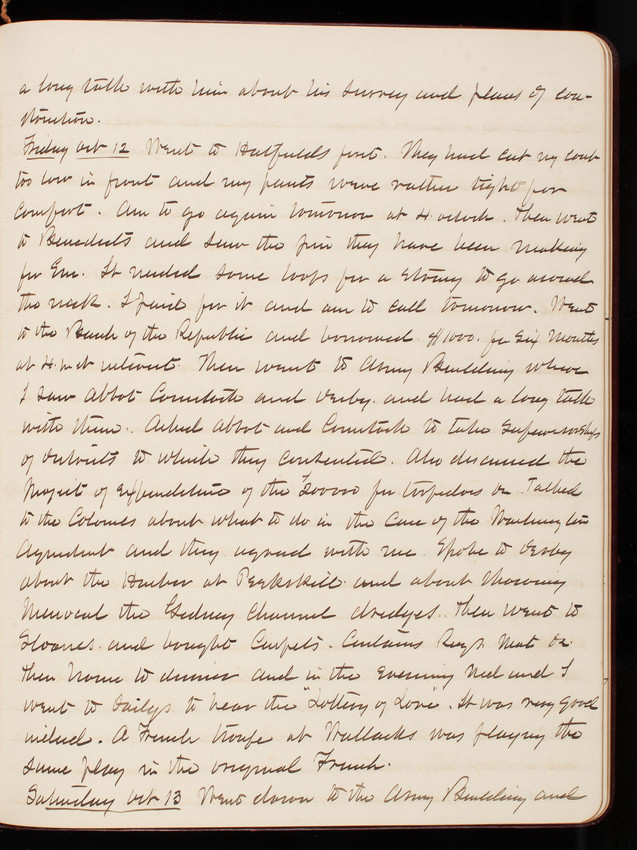 a long talk with him about his survey and plans of con-
struction.
Friday Oct 12 Went to Hatfields first. They had cut my coat
too low in front and my pants were rather tight for
comfort. Am to go again tomorrow at 4 oclock. Then went
to Benedicts and saw the pin they have been making
for Em. It needed some loops for a string to go around
the neck. I paid for it and am to call tomorrow. Went
to the Bank of the Republic and borrowed $1000. for Six Months
at 4. interest. Then went to Army Building where
I saw Abbot Comstock and Derby. and had a long talk
with them. Asked Abbot and Comstock to take Supervisorships
of Districts to which they consented. Also discussed the
Project of Expenditure of the 200000 for torpedoes &c. Talked
to the Colonels about what to do in the Case of the Washington
Aqueduct and they agreed with me. Spoke to Derby
about the Harbor at Peekskill and about showing
Menocal the Gedney Channel dredges. Then went to
Sloanes and bought Carpets. Curtains Rugs Mat &c.
then home to dinner and in the evening Ned and I
went to Dalys to hear the "Lottery of Love". It was very good
indeed. A French troupe at Wallacks was playing the
same play in the original French.
Saturday Oct 13 Went down to the Army Building and